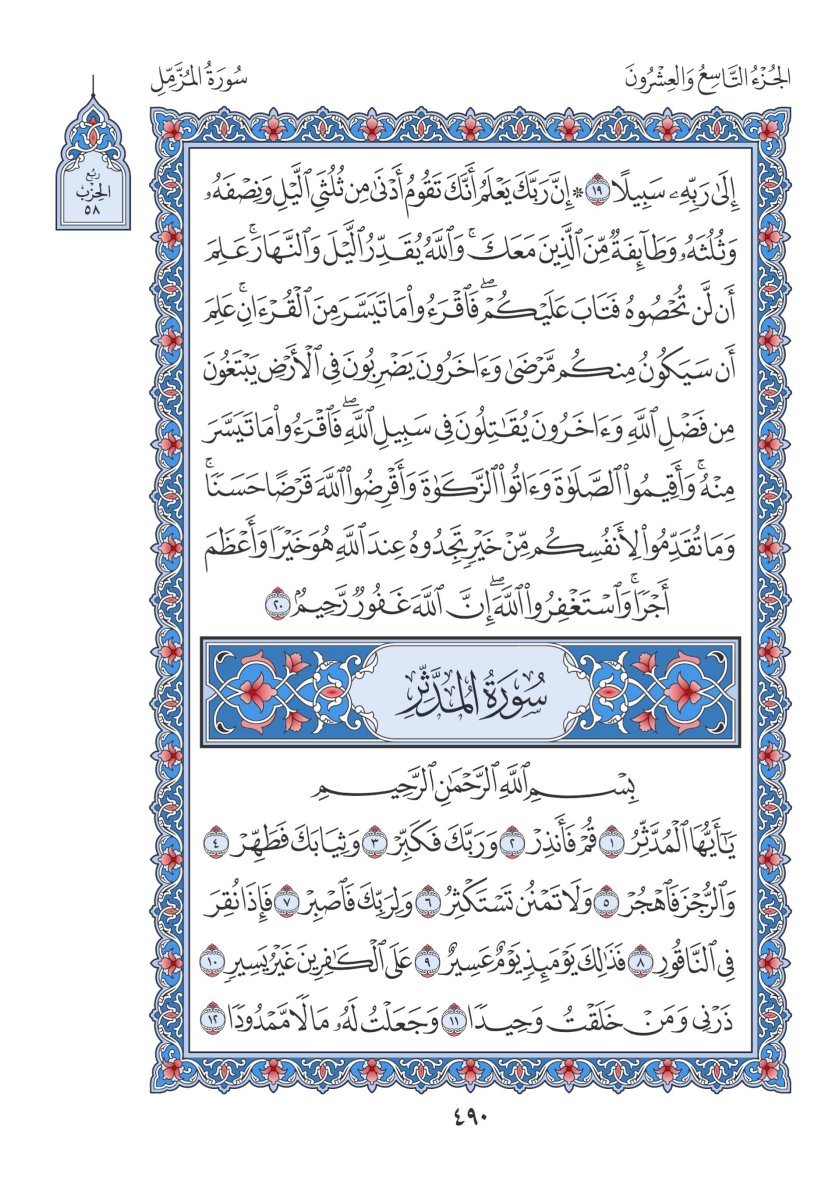 الجُزْءُ التَّاسِعُ وَالعِشْرُونَ
سُورَةُ المُزَّمِّلِ
رُبْعُ
الحِزْبِ
٥٨
إِلَىٰ رَبِّهِۦ سَبِيلًا ١٩ ۞ إِنَّ رَبَّكَ يَعْلَمُ أَنَّكَ تَقُومُ أَدْنَىٰ مِن ثُلُثَىِ ٱلَّيْلِ وَنِصْفَهُۥ
وَثُلُثَهُۥ وَطَآئِفَةٌ مِّنَ ٱلَّذِينَ مَعَكَۚ وَٱللَّهُ يُقَدِّرُ ٱلَّيْلَ وَٱلنَّهَارَۚ عَلِمَ
أَن لَّن تُحْصُوهُ فَتَابَ عَلَيْكُمْۖ فَٱقْرَءُوا۟ مَا تَيَسَّرَ مِنَ ٱلْقُرْءَانِۚ عَلِمَ
أَن سَيَكُونُ مِنكُم مَّرْضَىٰ وَءَاخَرُونَ يَضْرِبُونَ فِى ٱلْأَرْضِ يَبْتَغُونَ
مِن فَضْلِ ٱللَّهِ وَءَاخَرُونَ يُقَـٰتِلُونَ فِى سَبِيلِ ٱللَّهِۖ فَٱقْرَءُوا۟ مَا تَيَسَّرَ
مِنْهُۚ وَأَقِيمُوا۟ ٱلصَّلَوٰةَ وَءَاتُوا۟ ٱلزَّكَوٰةَ وَأَقْرِضُوا۟ ٱللَّهَ قَرْضًا حَسَنًاۚ
وَمَا تُقَدِّمُوا۟ لِأَنفُسِكُم مِّنْ خَيْرٍ تَجِدُوهُ عِندَ ٱللَّهِ هُوَ خَيْرًا وَأَعْظَمَ
أَجْرًاۚ وَٱسْتَغْفِرُوا۟ ٱللَّهَۖ إِنَّ ٱللَّهَ غَفُورٌ رَّحِيمٌۢ ٢٠
سُورَةُ المُدَّثِّرِ
بِسْمِ ٱللَّهِ ٱلرَّحْمَـٰنِ ٱلرَّحِيمِ
يَـٰٓأَيُّهَا ٱلْمُدَّثِّرُ ١ قُمْ فَأَنذِرْ ٢ وَرَبَّكَ فَكَبِّرْ ٣ وَثِيَابَكَ فَطَهِّرْ ٤
وَٱلرُّجْزَ فَٱهْجُرْ ٥ وَلَا تَمْنُن تَسْتَكْثِرُ ٦ وَلِرَبِّكَ فَٱصْبِرْ ٧ فَإِذَا نُقِرَ
فِى ٱلنَّاقُورِ ٨ فَذَٰلِكَ يَوْمَئِذٍ يَوْمٌ عَسِيرٌ ٩ عَلَى ٱلْكَـٰفِرِينَ غَيْرُ يَسِيرٍ ١٠
ذَرْنِى وَمَنْ خَلَقْتُ وَحِيدًا ١١ وَجَعَلْتُ لَهُۥ مَالًا مَّمْدُودًا ١٢
٤٩٠